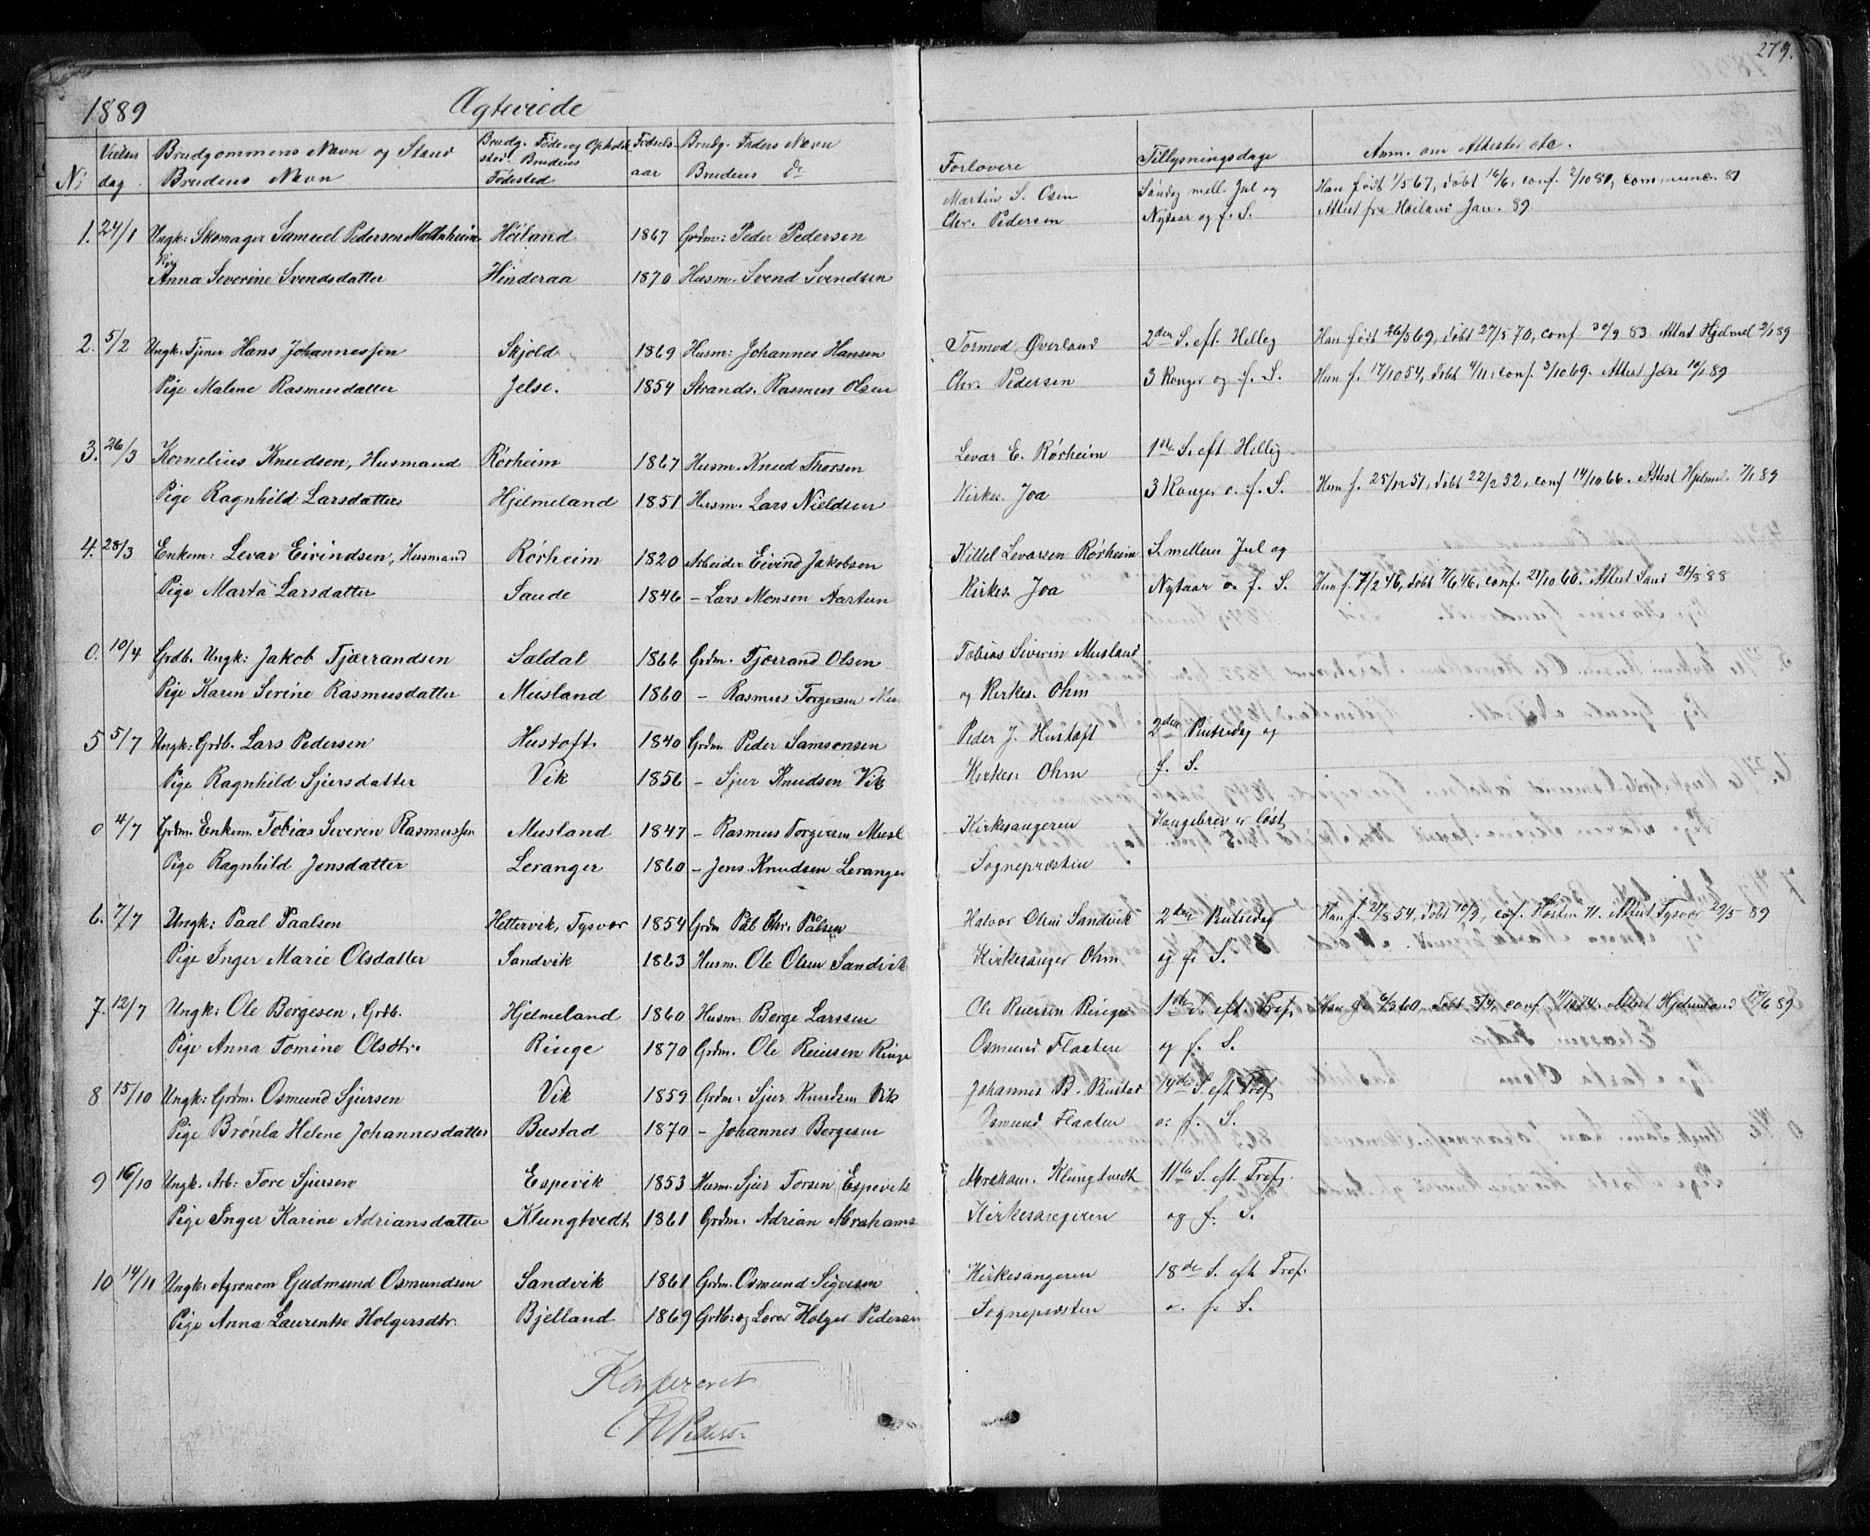 279.
1889 Ægteviede
N: Vielses dag Brudgommens Navn og Stand Brudens Navn Brudg. Føde og Opholdssted Brudens Fødested Fødselsaar Brudg. Faders Navn Brudens do Forlovere Tillysningsdage Anm. om Attester etc.
1. 24/1 Ungk: Skomager Samuel Pedersen Høiland 1867 Grdm: Peder Pedersen Martin S. Osen Søndag mell. Jul og Han født 1/5 67, døbt 16/6, conf. 2/10 81, communc. 87
Pige Anna Severine Svendsdatter Hinderaa 1870 Husm. Svend Svendsen Chr. Pedersen Nytaar og f. S. Attest fra Høiland Jan. 89
2. 5/2 Ungk: Tjener Hans Johannessen Skjold 1869 Husm: Johannes Hansen Tormod Øverland 2den S. eft. Hellig Han født 26/5 69, døbt 27/5 70, conf. 30/9 83. Attest Hjelmel 2/1 89
Pige Malene Rasmusdatter Jelse. 1854 Strands. Rasmus Olsen Chr. Pedersen 3 Konger og f. S. Hun f. 17/10 54, døbt 4/11, conf. 3/10 69. Attest Jelse 10/1 89
3. 26/3 Kornelius Knudsen, Husmand Rørheim 1867 Husm. Knud Thorsen Levar E. Rørheim 1ste S. eft Hellig
Pige Ragnhild Larsdatter Hjelmeland 1851 Husm. Lars Nieldsen Kirkes. Joa 3 Konger o. f. S. Hun f. 25/12 51, døbt 22/2 52, conf 14/10 66. Attest Hjelmel. 7/1 89
4. 28/3 Enkem: Levar Eivindsen, Husmand Rørheim 1820 Arbeider Eivind Jakobsen Kittel Levarsen Rørheim S. mellem Jul og
Pige Marta Larsdatter Saude 1846 - Lars Monsen Kirkes. Joa Nytaar o. f. S. Hun f. 7/2 46, døbt 7/6 46, conf. 21/10 60. Attest Saud 24/8 88
0. 10/4 Grdb. Ungk: Jakob Tjærrandsen Sældal 1866 Grdm. Tjerrand Olsen Tobias Siverin Musland
Pige Karen Serine Rasmusdatter Musland 1860 - Rasmus Torgersen Mu og Kirkes. Ohm
5 5/7 Ungk: Grdb. Lars Pedersen Hustoft. 1840 Grdm. Peder Samsonsen Peder J. Hustoft 2den Pintsedag og
Pige Ragnhild Sjursdatter Vik 1856 - Sjur Knudsen Vik Kirkes. Ohm f. S.
0 4/7 Grdm. Enkem. Tobias Severin Rasmussen Musland 1847 - Rasmus Torgersen Musl Kirkesangeren Kongebrev er løst
Pige Ragnhild Jensdatter Leranger 1860 - Jens Knudsen Leranger Sognepræsten
6. 7/7 Ungk: Paal Paalsen Hettervik, Tysvær 1854 Grdm Pål Chr. Pålsen Halvor Olsen Sandvik 2den Pintsedag Han f. 21/8 54, døbt 10/9, conf. Høsten 71. Attest Tysvær 29/5 89
Pige Inger Marie Olsdatter Sandvik 1863 Husm. Ole Olsen Sandvik Kirkesanger Ohm og f. S.
7. 12/7 Ungk: Ole Børgesen, Grdb. Hjelmeland 1860 Husm. Børge Larssen Ole Reiersen Ringe 1ste S. eft Tref. Han f. 6/3 60. Døbt 8/4, conf. 11/10 74. Attest Hjelmeland 17/6 89
Pige Anna Tomine Olsdtr. Ringe 1870 Grdm. Ole Reiersen Ringe Osmund Flaaten og f. S.
8 15/10 Ungk: Grdm. Osmund Sjursen Vik 1859 Grdm: Sjur Knudsen Vik Johannes B. Bustad 14de S. eft Tref
Pige Brønla Helene Johannesdatter Bustad 1870 - Johannes Børgesen Osmund Flaaten o. f. S.
9 16/10 Ungk. Arb: Tore Sjursen Espevik 1853 Husm. Sjur Torsen Espevik Abraham. Klungtvedt 11te S. eft. Tref.
Pige Inger Karine Adriansdatter Klungtvedt 1861 Grdm. Adrian Abrahams Kirkesangeren og f. S.
10 14/11 Ungk. Agronom Gudmund Osmundsen Sandvik 1861 Grdm. Osmund Sigvesen Kirkesangeren 18de S. eft Tref.
Pige Anna Laurentse Holgersdtr. Bjelland 1869 Grdb: og Lærer Holger Pedersen Sognepresten o. f. S.
Konfereret
Peders.